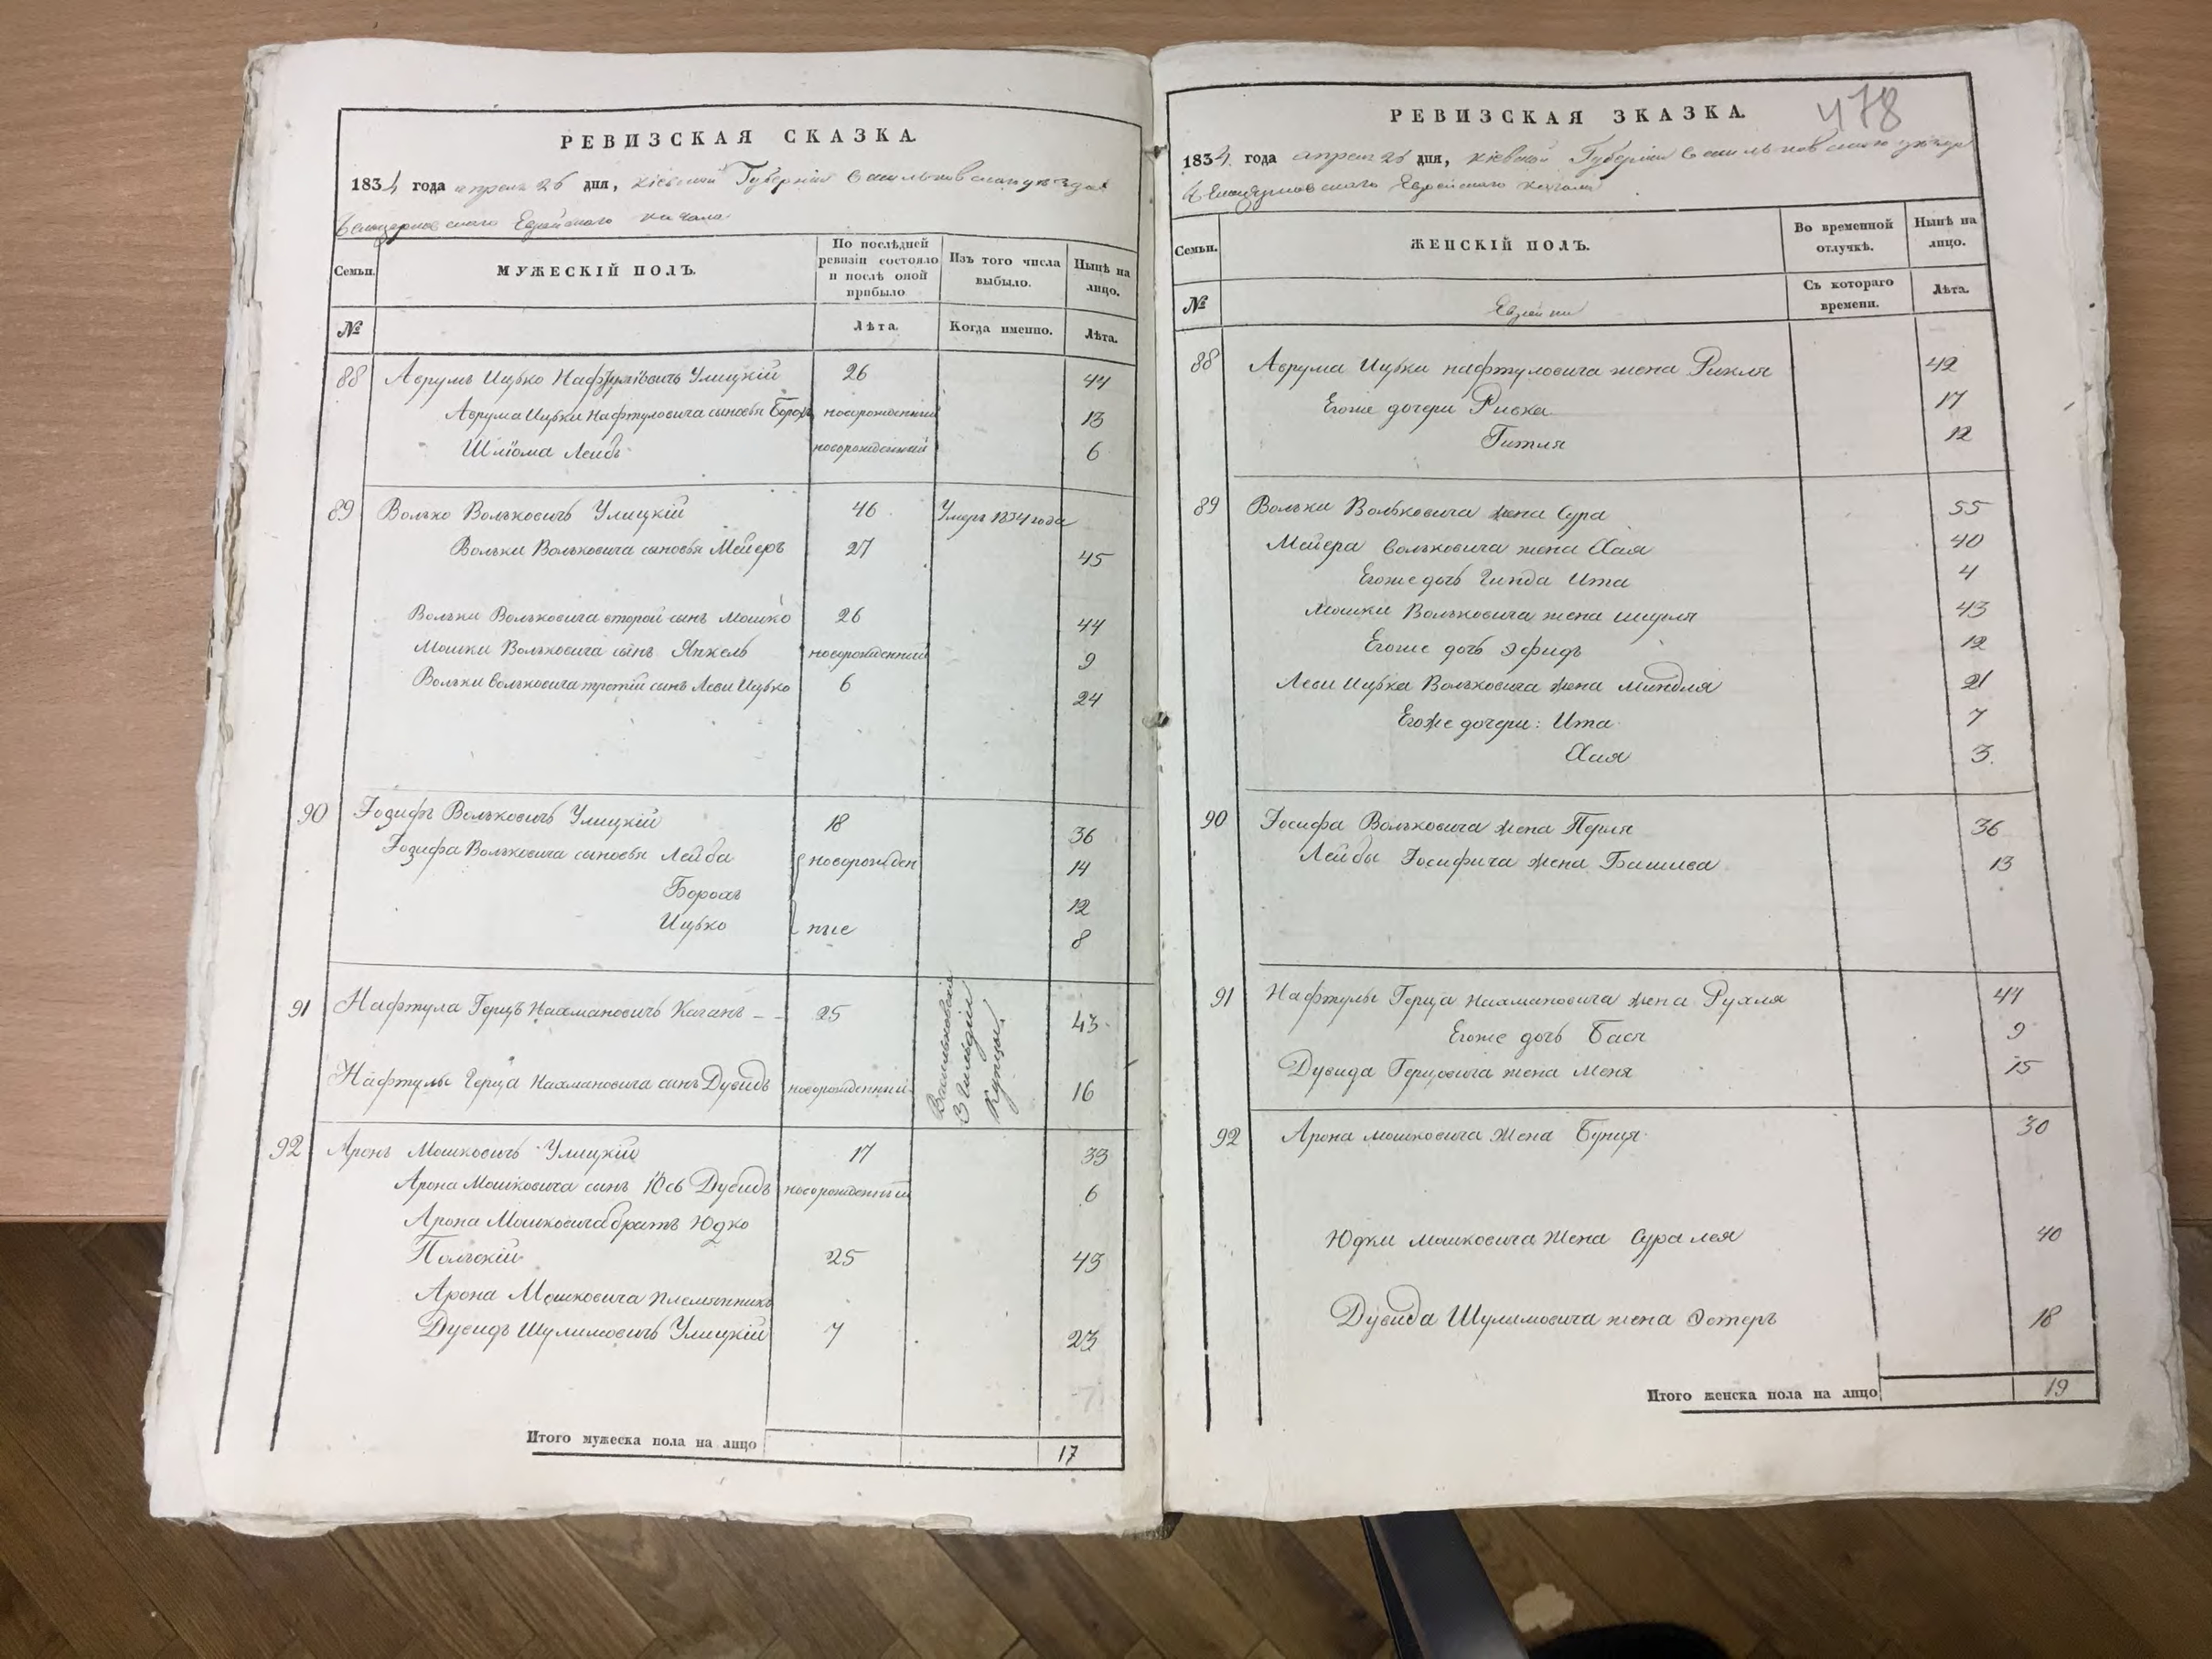 РЕВИЗСКАЯ СКАЗКА.
1834 года апреля 26 дня, Кіевской Губерніи Васильковскаго уѣзда
Еврейского кагала
Семьи.
МУЖЕСКІЙ ПОЛЪ.
По послѣдней ревизіи состояло и послѣ оной прибыло
Изъ того числа выбыло.
Нынѣ на лицо.
№
Лѣта.
Когда именно.
Лѣта.
88 Аврумъ Ицько Нафтуловичъ Улицкій 26 44
Аврума Ицьки Нафтуловича сыновья Борохъ новорожденный 13
Шліома Лейбъ новорожденный 6
89 Волько Вольковичъ Улицкій 46 Умеръ 1834 года
Вольки Вольковича сыновья Мейеръ 27 45
Вольки Вольковича второй сынъ Мошко 26 44
Мошки Вольковича сынъ Янкель новорожденный 9
Вольки Вольковича третій сынъ Леви Ицько 6 24
90 Іозифъ Вольковичъ Улицкій 18 36
Іозифа Вольковича сыновья Лейба новорожден 14
Борохъ 12
Ицько ные 8
91 Нафтула Герцъ Нахмановичъ Каганъ 25 43
Васильковскіе 3 Гильдіи Купцы.
Нафтулы Герца Нахмановича сынъ Дувидъ новорожденный 16
92 Аронъ Мошковичъ Улицкій 17 33
Арона Мошковича сынъ Іось Дувидъ новорожденный 6
Арона Мошковича братъ Юдко
Польскій 25 43
Арона Мошковича племянникъ
Дувидъ Шулимовичъ Улицкій 7 23
Итого мужеска пола на лицо 17
478
РЕВИЗСКАЯ ЗКАЗКА.
1834 года апреля 26 дня, Кіевской Губерніи Васильковскаго уѣзда
Еврейского кагала
Семьи.
ЖЕНСКІЙ ПОЛЪ.
Во временной отлучкѣ.
Нынѣ на лицо.
№
Еврейки
Съ котораго времени.
Лѣта.
88 Аврума Ицьки Нафтуловича жена Рикля 42
Егоже дочери Ривка 17
Гитля 12
89 Вольки Вольковича жена Сура 55
Мейера Вольковича жена Хая 40
Егоже дочь Гинда Ита 4
Мошки Вольковича жена Шифля 43
Егоже дочь Эфидъ 12
Леви Ицька Вольковича жена Миндля 21
Егоже дочери: Ита 7
Хая 3.
90 Іосифа Вольковича жена Перля 36
Лейбы Іосифича жена Башева 13
91 Нафтулы Герца Нахмановича жена Рухля 44
Егоже дочь Бася 9
Дувида Герцовича жена Меня 15
92 Арона Мошковича жена Бунця 30
Юдки Мошковича жена Сура Лея 40
Дувида Шулимовича жена Эстеръ 18
Итого женска пола на лицо 19